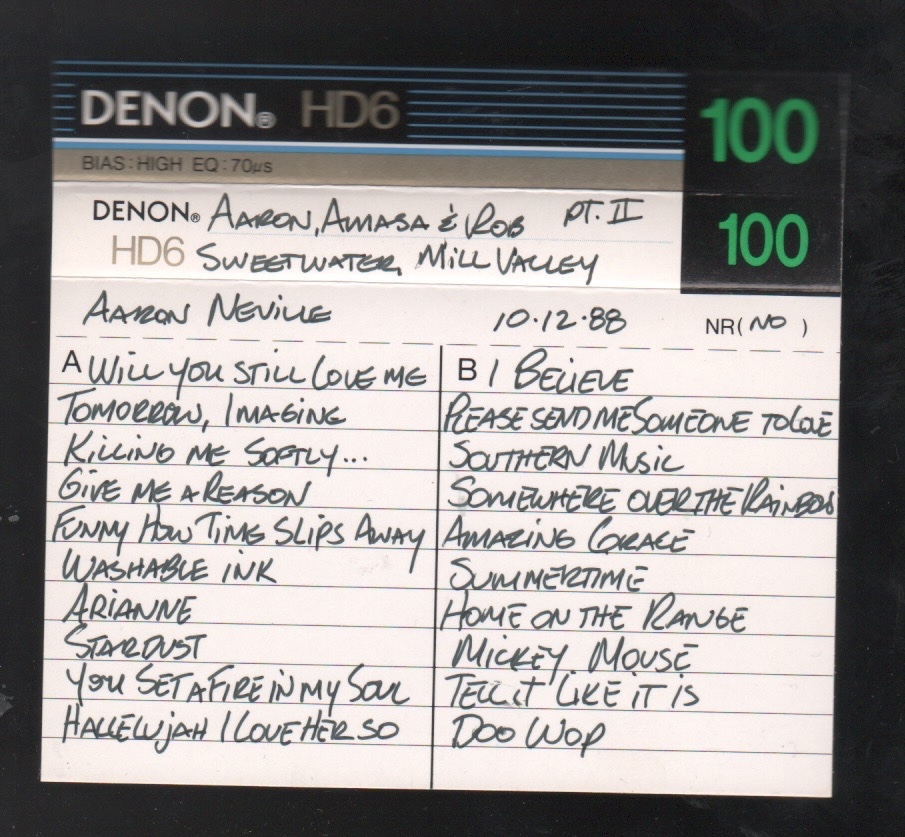 DENON® HD6 100
BIAS:HIGH EQ:70µs
DENON® AARON, AMASA & ROB PT. II 100
HD6 SWEETWATER, MILL VALLEY
AARON NEVILLE 10·12·88 NR( NO )
A WILL YOU STILL LOVE ME
TOMORROW, IMAGINE
KILLING ME SOFTLY...
GIVE ME A REASON
FUNNY HOW TIME SLIPS AWAY
WASHABLE INK
ARIANNE
STARDUST
YOU SET A FIRE IN MY SOUL
HALLELUJAH I LOVE HER SO
B I BELIEVE
PLEASE SEND ME SOMEONE TO LOVE
SOUTHERN MUSIC
SOMEWHERE OVER THE RAINBOW
AMAZING GRACE
SUMMERTIME
HOME ON THE RANGE
MICKEY MOUSE
TELL IT LIKE IT IS
DOO WOP